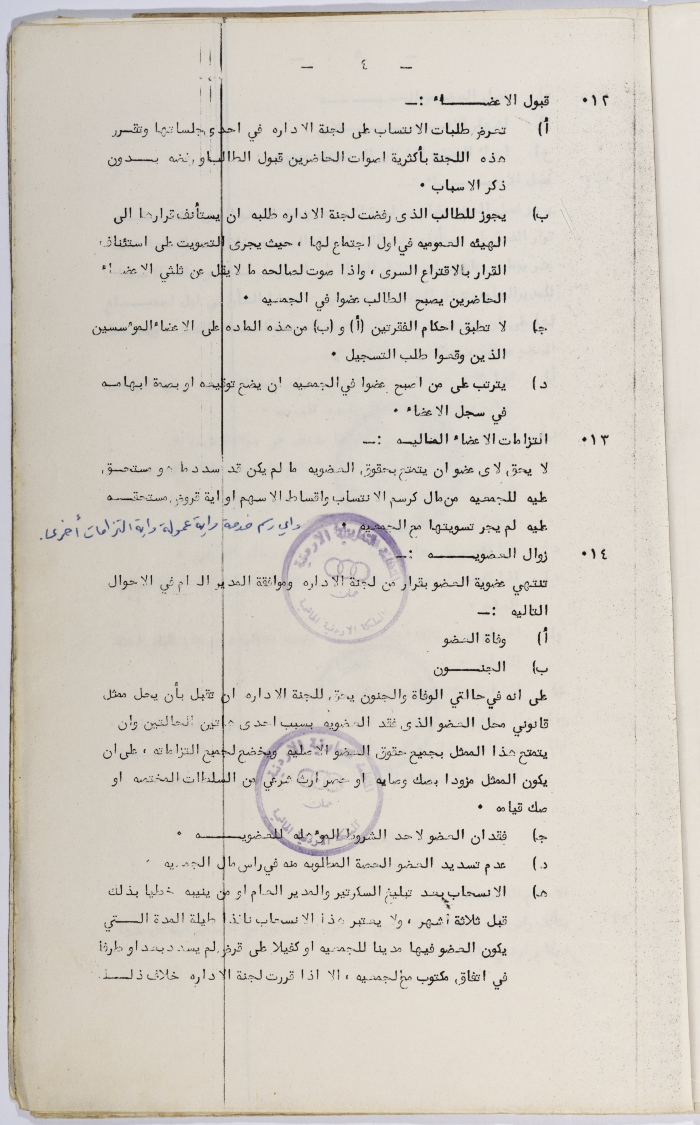 — ٤ —
١٢٠ قبول الاعضـــاء :ـ
أ) تعرض طلبات الانتساب على لجنة الاداره في احدى جلساتها وتقـرر
هذه اللجنة بأكثرية اصوات الحاضرين قبول الطالب او رفضه بـــدون
ذكر الاسباب ٠
ب) يجوز للطالب الذى رفضت لجنة الاداره طلبه ان يستأنف قرارها الى
الهيئه العموميه في اول اجتماع لها ، حيث يجرى التصويت على استئناف
القرار بالاقتراع السرى ، واذا صوت لصالحه ما لا يقل عن ثلثي الاعضـاء
الحاضرين يصبح الطالب عضوا في الجمعيه ٠
ج) لا تطبق احكام الفقرتين (أ) و (ب) من هذه الماده على الاعضاء المؤسسين
الذين وقعوا طلب التسجيل ٠
د) يترتب على من اصبح عضوا في الجمعيه ان يضع توقيعه او بصمة ابهامـه
في سجل الاعضاء ٠
١٣٠ التزامات الاعضاء الماليـه :ـ
لا يحق لاى عضو ان يتمتع بحقوق العضويه ما لم يكن قد سدد ما هو مستحـق
عليه للجمعيه من مال كرسم الانتساب واقساط الاسهم او اية قروض مستحقـه
عليه لم يجر تسويتها مع الجمعيه ٠ واي رسم خدمة واية عمولة واية التزامات أخرى.
١٤٠ زوال العضويـــه :ـ
تنتهي عضوية العضو بقرار من لجنة الاداره وموافقة المدير العام في الاحوال
التاليه :ـ
أ) وفاة العضو
ب) الجنـــون
على انه في حالتي الوفاة والجنون يحق للجنة الاداره ان تقبل بأن يحل ممثل
قانوني محل العضو الذى فقد العضويه بسبب احدى هاتين الحالتين وان
يتمتع هذا الممثل بجميع حقوق العضو الاصليه ويخضع لجميع التزاماته ، على ان
يكون الممثل مزودا بصك وصايه او حصر ارث شرعي من السلطات المختصه او
صك قيامه ٠
ج) فقدان العضو لاحد الشروط المؤهله للعضويـــه ٠
د) عدم تسديد العضو الحصة المطلوبه منه في راس مال الجمعيه ٠
هـ) الانسحاب بعد تبليغ السكرتير والمدير العام او من ينيبه خطيا بذلك
قبل ثلاثة أشهر ، ولا يعتبر هذا الانسحاب نافذا طيلة المدة التـــي
يكون العضو فيها مدينا للجمعيه او كفيلا على قرض لم يسدد بعد او طرفا
في اتفاق مكتوب مع الجمعيه ، الا اذا قررت لجنة الاداره خلاف ذلـــك
المنظمة التعاونية الاردنية
عمان
المملكة الاردنية الهاشمية